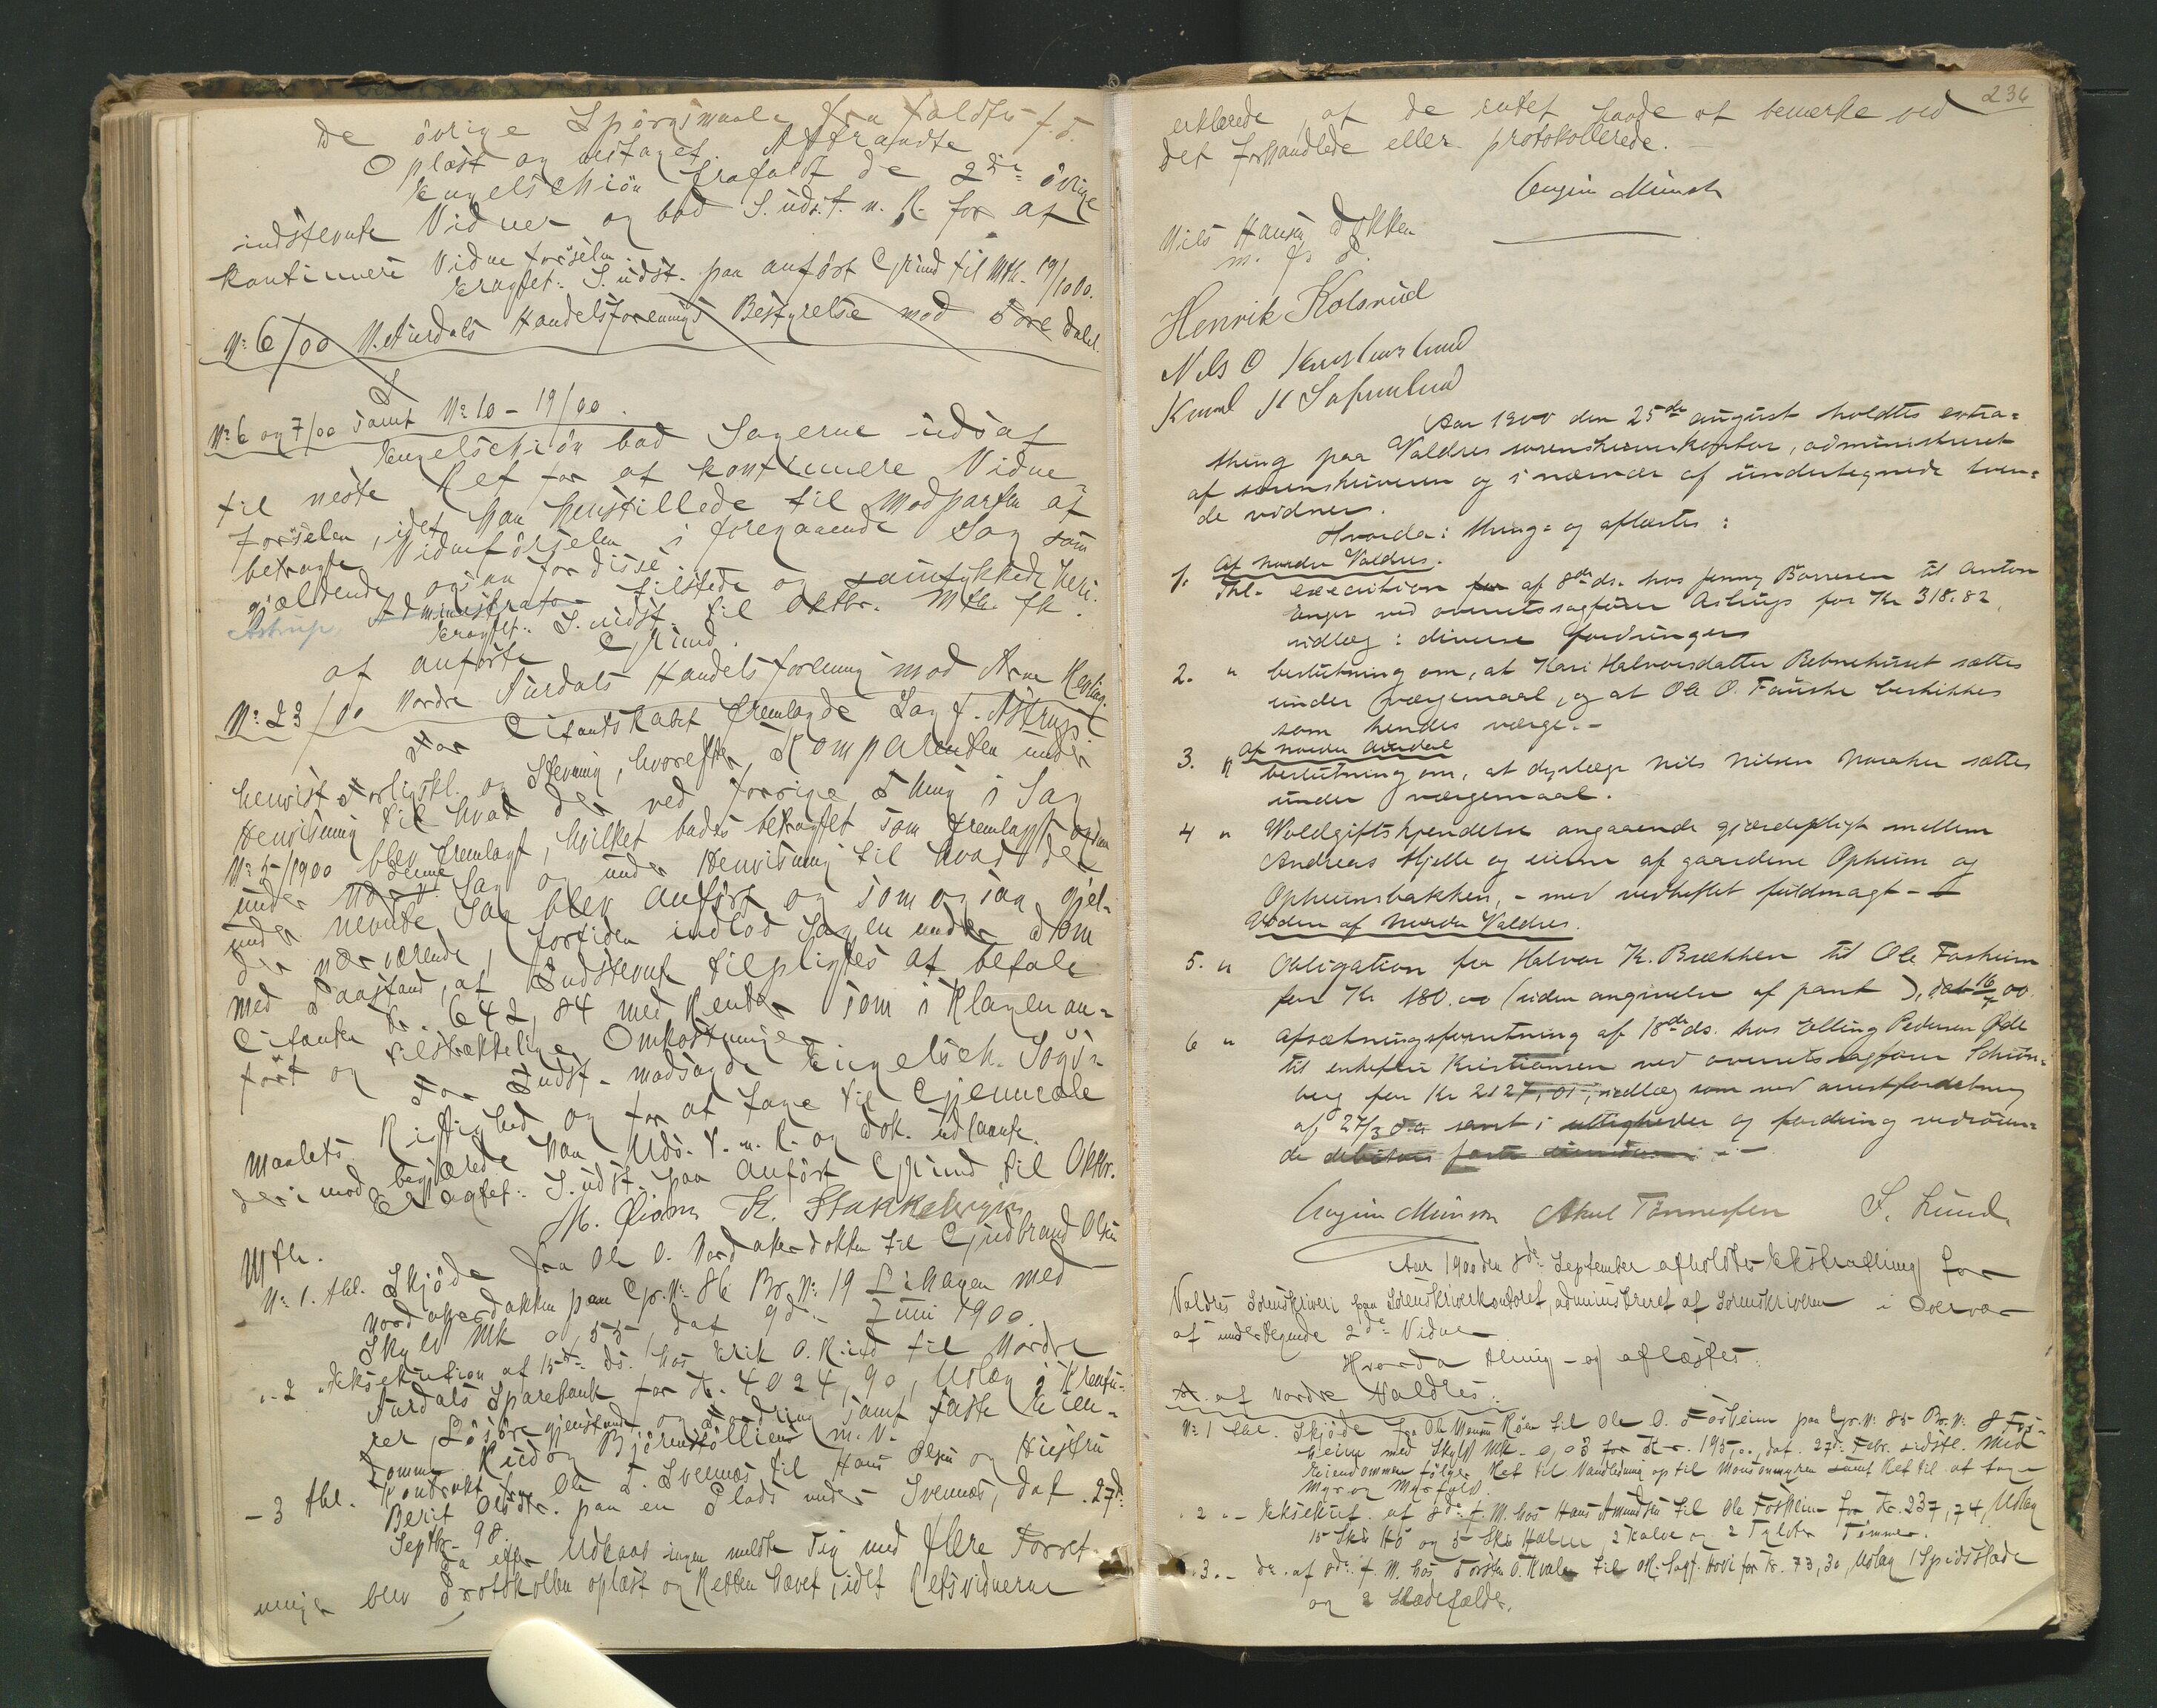 De övrige Spörgsmaale fra faldtes f. ö.
Oplæst og vedtaget. Aftraadte
Engelschiön frafaldt de 2de övrige
indstevnte Vidner og bad S. udst. n. R. for at
kontinuere Vidneförselen.
Eragtet: S. udst. paa anført Grund til Mth. 19/10 00.
No 6/00 N. Aurdals Handelsforenings Bestyrelse mod Tore Dahl.
No 6 og 7/00 samt No 10 - 19/00.
Engelschiön bad Sagerne udsat
til neste Ret for at kontinuere Vidne-
førselen, idet han henstillede til Modparten at
betragte Vidneførselen i foregaaende Sag som
gjældende ogsaa for disse.
Astrup tilstede og samtykkede heri.
Eragtet: S. udst. til Oktbr. Mth. fh.
af anførte Grund.
No 23/00 Nordre Aurdals Handelsforening mod Arne
For Citantskabet fremlagde Sagf. Astrup
henvist Forligskl. og Stevning, hvorefter Komparenten under
Henvisning til hvad der ved forrige Thing i Sag
No 5/1900 blev fremlagt, hvilket bades betragtet som fremlagt
under denne Sag og under Henvisning til hvad der
under nevnte Sag blev anført og som ogsaa gjel-
der nærværende, fortiden indlod Sagen under Dom
med Paastand, at Indstevnte tilpligtes at betale
Citanten Kr. 642,84 med Renter som i Klagen an-
ført og tilstrækkelige Omkostninger
For Indst. modsagde Engelsch. Sögs-
maalets Rigtighed og for at tage til Gjenmæle
derimod begjærede han Uds. t. n. R. og Dok. udlaante.
Eragtet: S. udst. paa anført Grund til Oktbr.
Mth.
No 1. thl. Skjöde fra Ole O. Nordakerdokken til Gudbrand Olsen
Nordakerdokken paa Gr. No 86 Br. No 19 Lihagen med
Skyld Mk 0,55, dat 9de Juni 1900.
" 2 " Eksekution af 15de ds. hos Erik O. Ruud til Nordre
Aurdals Sparebank for Kr. 4024,90, Udlæg i Kreatu-
rer, Lösöregjenstande og Fordring samt faste Eien-
domme Ruud og Björnstöllien m. v.
- 3 thl. Kontrakt fra Ole T. Svennes til Hans Olsen og Hustru
Berit Olsdtr. paa en Plads under Svennes, dat. 27de
Septbr. 98.
Da efter Udraab ingen meldte sig med flere Forret-
ninger blev Protokollen oplæst og Retten hævet, idet Retsvidnerne
236
erklærede, at de intet havde at bemerke ved
det forhandlede eller protokollerede.
Eugin Münst
Nils Hansen Dokken
m. f. P.
Henrik Kolsrud
Nils O
Knud K
Aar 1900 den 25de august holdtes extra-
thing paa Valdres sorenskriverkontor, administreret
af sorenskriveren og i nærvær af undertegnede tven-
de vidner.
Hvorda: thing- og aflæstes:
Af nordre Valdres.
1. Thl. execution af 8de ds. hos Jenny Börresen til Anton
Enger ved overretssagfører Astrup for Kr 318.82,
udlæg: diverse fordringer
2. " beslutning om, at Kari Halvorsdatter Rebnehuset sættes
under værgemaal, og at Ole O. Fauske beskikkes
som hendes værge.-
af nordre Aurdal
3. " beslutning om, at dyrlæge Nils Nilsen Noraker sættes
under værgemaal.
4 " Voldgiftskjendelse angaaende gjærdepligt mellem
Andreas Hjelle og eierne af gaardene Opheim og
Opheimsbakken, - med vedheftet fuldmagt -
Vidre af nordre Valdres.
5. " Obligation fra Halvor K. Brækken til Ole Fosheim
for Kr 180.00 (uden angivelse af pant), dat 16/7 00.
6 " Afsætningsforretning af 18de ds. hos Elling Pedersen Ødde
til enkefru Kristiansen ved overretssagfører Schön-
berg for Kr 2127,01, udlæg som ved arrestforretning
af 27/3 d.a. samt i uttigheder og fordring vedrören-
de debitors faste eiendom. -
Eugin Münst Aksel Tönnesen S. Lund.
Aar 1900 den 8de September afholdtes Ekstrathing for
Valdres Sorenskriveri paa Sorenskriverkontoret, administreret af Sorenskriveren i Overvær
af undertegnede 2de Vidner
Hvorda thing- og aflæstes:
A. af nordre Valdres:
No 1 thl. Skjöde fra Ole Monsen Röen til Ole O. Fosheim paa Gr. No 85 Br. No 8 Fos-
heim med Skyld Mk. 0,03 for Kr. 195,00, dat. 27de Febr. sidstl. Med
Eiendommen følger Ret til Vandledning op til Monsemyren samt Ret til at tage
Myr og Myrfyld.
" 2 " - Eksekut. af 8de f. M. hos Hans Amundsen til Ole Fosheim for Kr. 237,74, Udlæg
15 Skk Hö og 5 Skk Halm, 2 Kalve og 2 Tylvter Tömmer.
" 3. - do. af 8de f. M. hos Torsten O. Kvale til O.R. Sagf. Hovi for Kr. 73,30, Udlæg 1 Spidsslæde
og 2 Slædefælder.